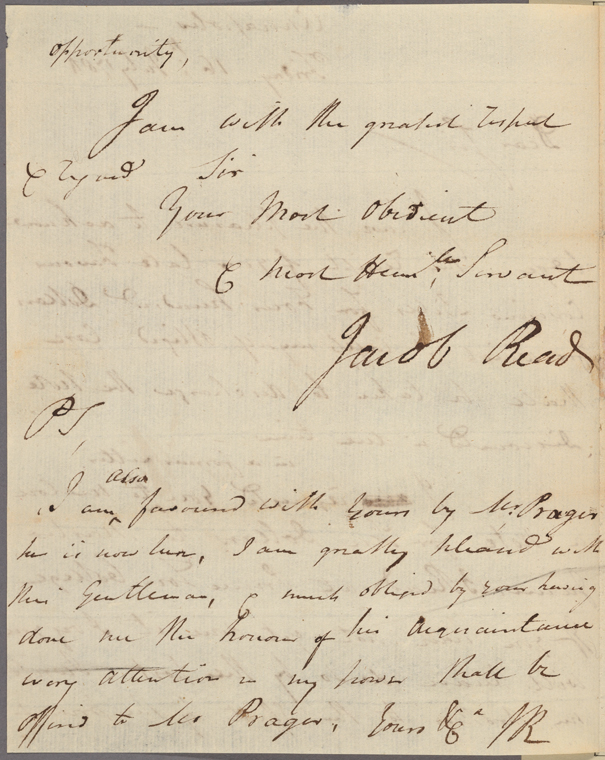 opportunity,
I am with the greatest respect
& regard Sir
Your Most Obedient
& most Humle Servant
Jacob Read
PS,
I am also favoured with yours by Mr. Prager
he is now here, I am greatly pleased with
this Gentleman, & much obliged by your having
done me the honour of his acquaintance
every attention in my power shall be
offered to Mr Prager. Yours &Ca JR